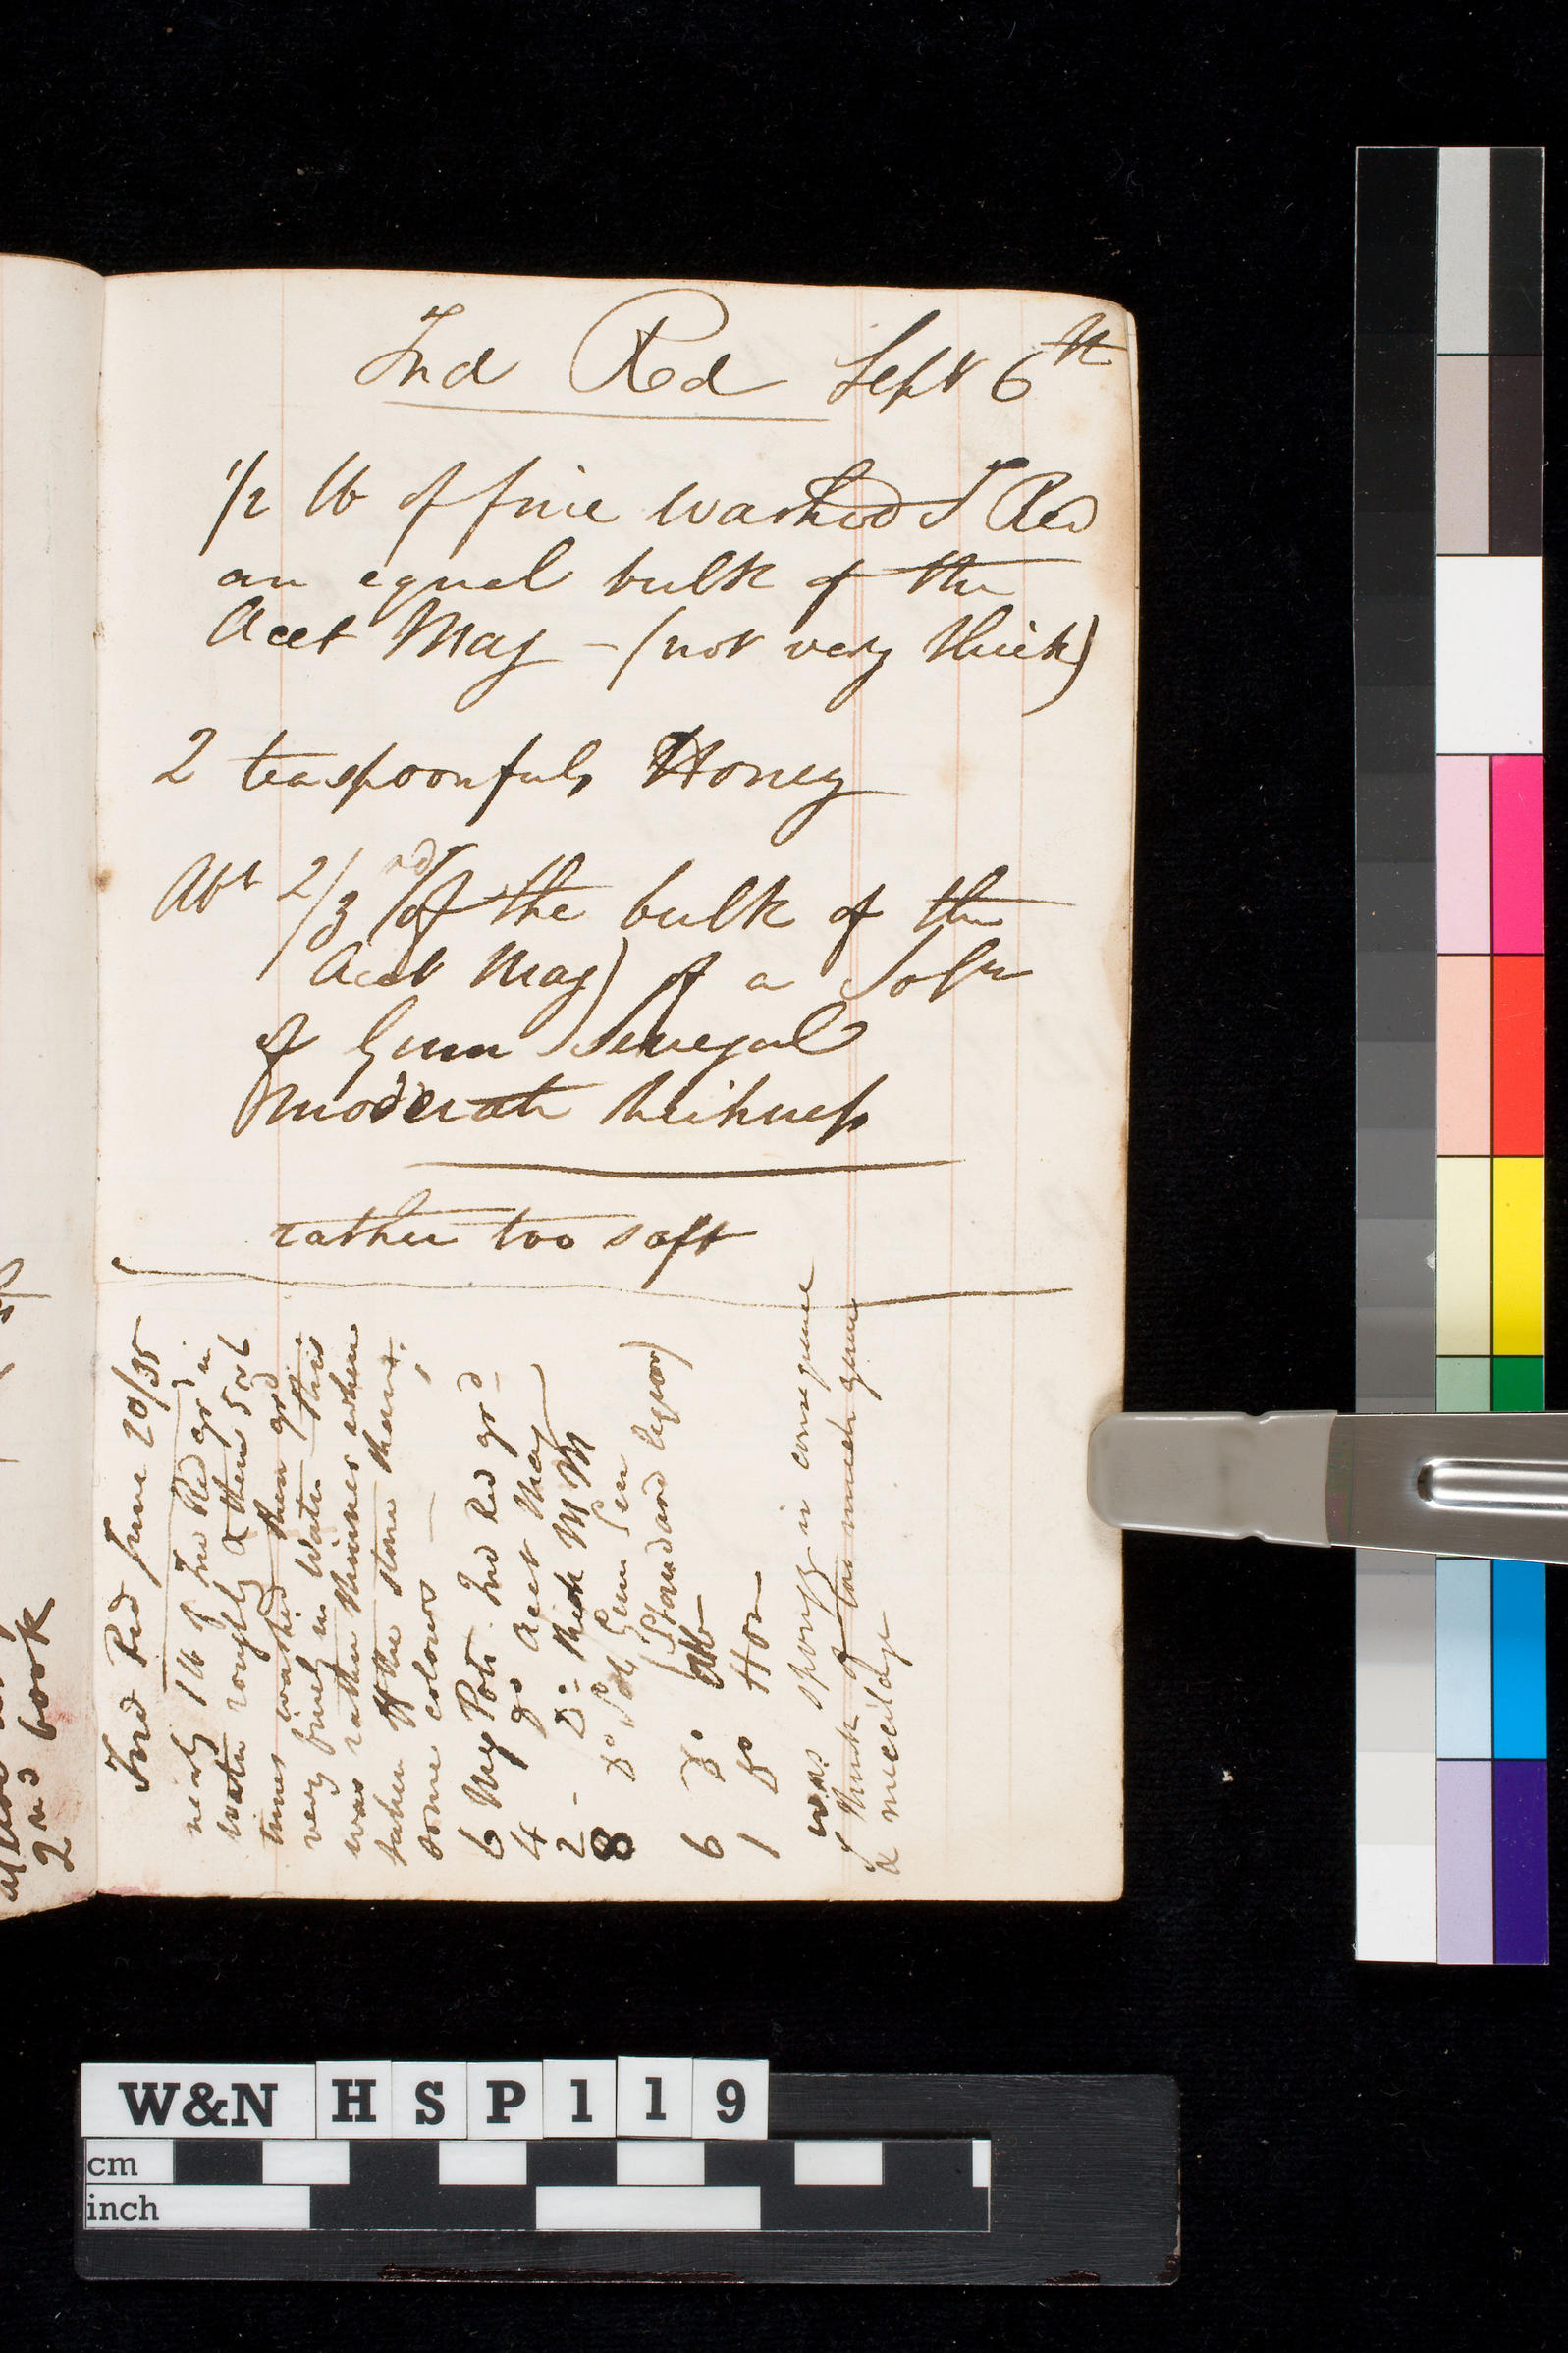 Ind Red Sept 6th
1/2 lb of fine washed I Red
an equal bulk of the
Acet Mag - (not very thick)
2 teaspoonfuls Honey
Abt 2/3rd (of the bulk of the
Acet Mag) of a Soln
of Gum Senegal
moderate thickness
rather too soft
Ind Red June 20/35
nearly 1 lb of Ind Red grd in
water roughly & then 5 or 6
times washed then grd
very finely in water this
was rather thinner when
taken off the stone than
some colours
6 Meg Pots Ind Red grd
4 Do Acet Mag
2 - Do thick M M
8 Do Sol Gum Sen
(Standard
6 Do
1 Do Hon
was spongy in consequence
I think of too much gum
& mucilage
2nd book
W&N HSP119
cm
inch